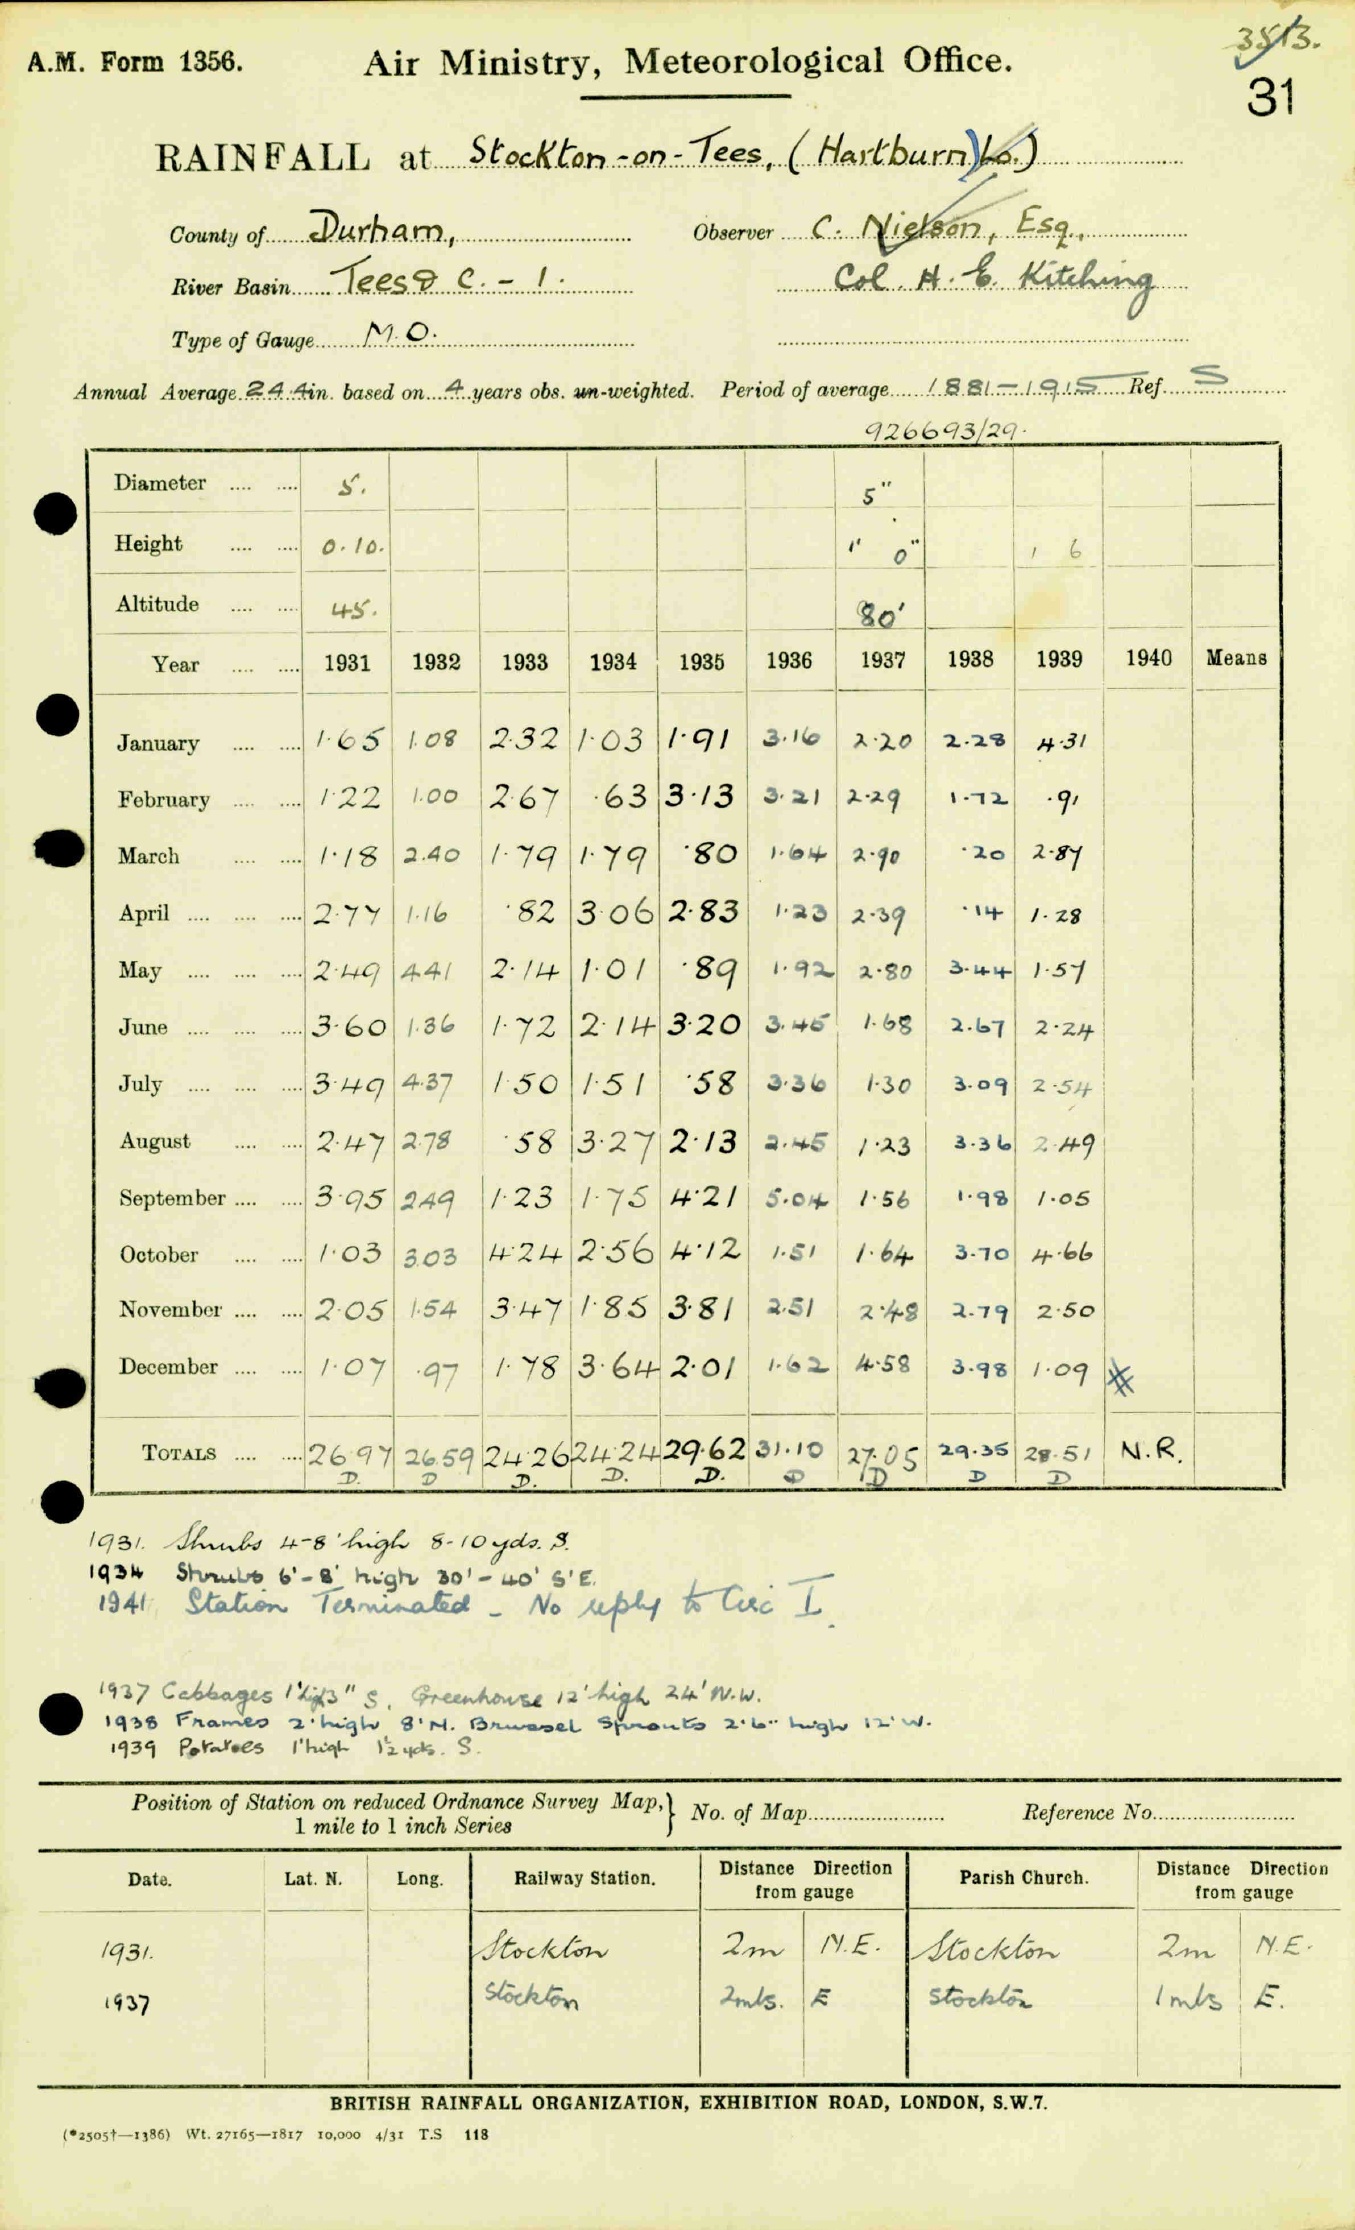 A.M. Form 1356.
Air Ministry, Meteorological Office.
31
RAINFALL at Stockton-on-Tees, (Hartburn) Lo.)
County of Durham,
Observer C. Nielson, Esq.,
River Basin Tees & C. - 1.
Col. H. E. Kitching
Type of Gauge M.O.
Annual Average 24.4 in. based on 4 years obs. un-weighted. Period of average 1881-1915 Ref. S
926693/29.
Diameter 5. 5"
Height 0.10. 1' 0" 1 6
Altitude 45. 80'
Year 1931 1932 1933 1934 1935 1936 1937 1938 1939 1940 Means
January 1.65 1.08 2.32 1.03 1.91 3.16 2.20 2.28 4.31
February 1.22 1.00 2.67 .63 3.13 3.21 2.29 1.72 .91
March 1.18 2.40 1.79 1.79 .80 1.64 2.90 .20 2.87
April 2.77 1.16 .82 3.06 2.83 1.23 2.39 .14 1.28
May 2.49 4.41 2.14 1.01 .89 1.92 2.80 3.44 1.57
June 3.60 1.36 1.72 2.14 3.20 3.45 1.68 2.67 2.24
July 3.49 4.37 1.50 1.51 .58 3.36 1.30 3.09 2.54
August 2.47 2.78 .58 3.27 2.13 2.45 1.23 3.36 2.49
September 3.95 2.49 1.23 1.75 4.21 5.04 1.56 1.98 1.05
October 1.03 3.03 4.24 2.56 4.12 1.51 1.64 3.70 4.66
November 2.05 1.54 3.47 1.85 3.81 2.51 2.48 2.79 2.50
December 1.07 .97 1.78 3.64 2.01 1.62 4.58 3.98 1.09
TOTALS 26.97 26.59 24.26 24.24 29.62 31.10 27.05 29.35 28.51 N.R.
D. D D. D. D. D D D D
1931. Shrubs 4-8' high 8-10 yds. S.
1934 Shrubs 6'-8' high 30'-40' S'E.
1941 Station Terminated - No reply to Circ I.
1937 Cabbages 1' high 3" S. Greenhouse 12' high 24' N.W.
1938 Frames 2' high 8' N. Brussel Sprouts 2'6" high 12' W.
1939 Potatoes 1' high 1½ yds. S.
Position of Station on reduced Ordnance Survey Map, 1 mile to 1 inch Series } No. of Map Reference No.
Date. Lat. N. Long. Railway Station. Distance Direction from gauge Parish Church. Distance Direction from gauge
1931. Stockton 2m N.E. Stockton 2m N.E.
1937 Stockton 2mls. E Stockton 1mls E.
BRITISH RAINFALL ORGANIZATION, EXHIBITION ROAD, LONDON, S.W.7.
(*2505†—1386) Wt. 27165—1817 10,000 4/31 T.S 118